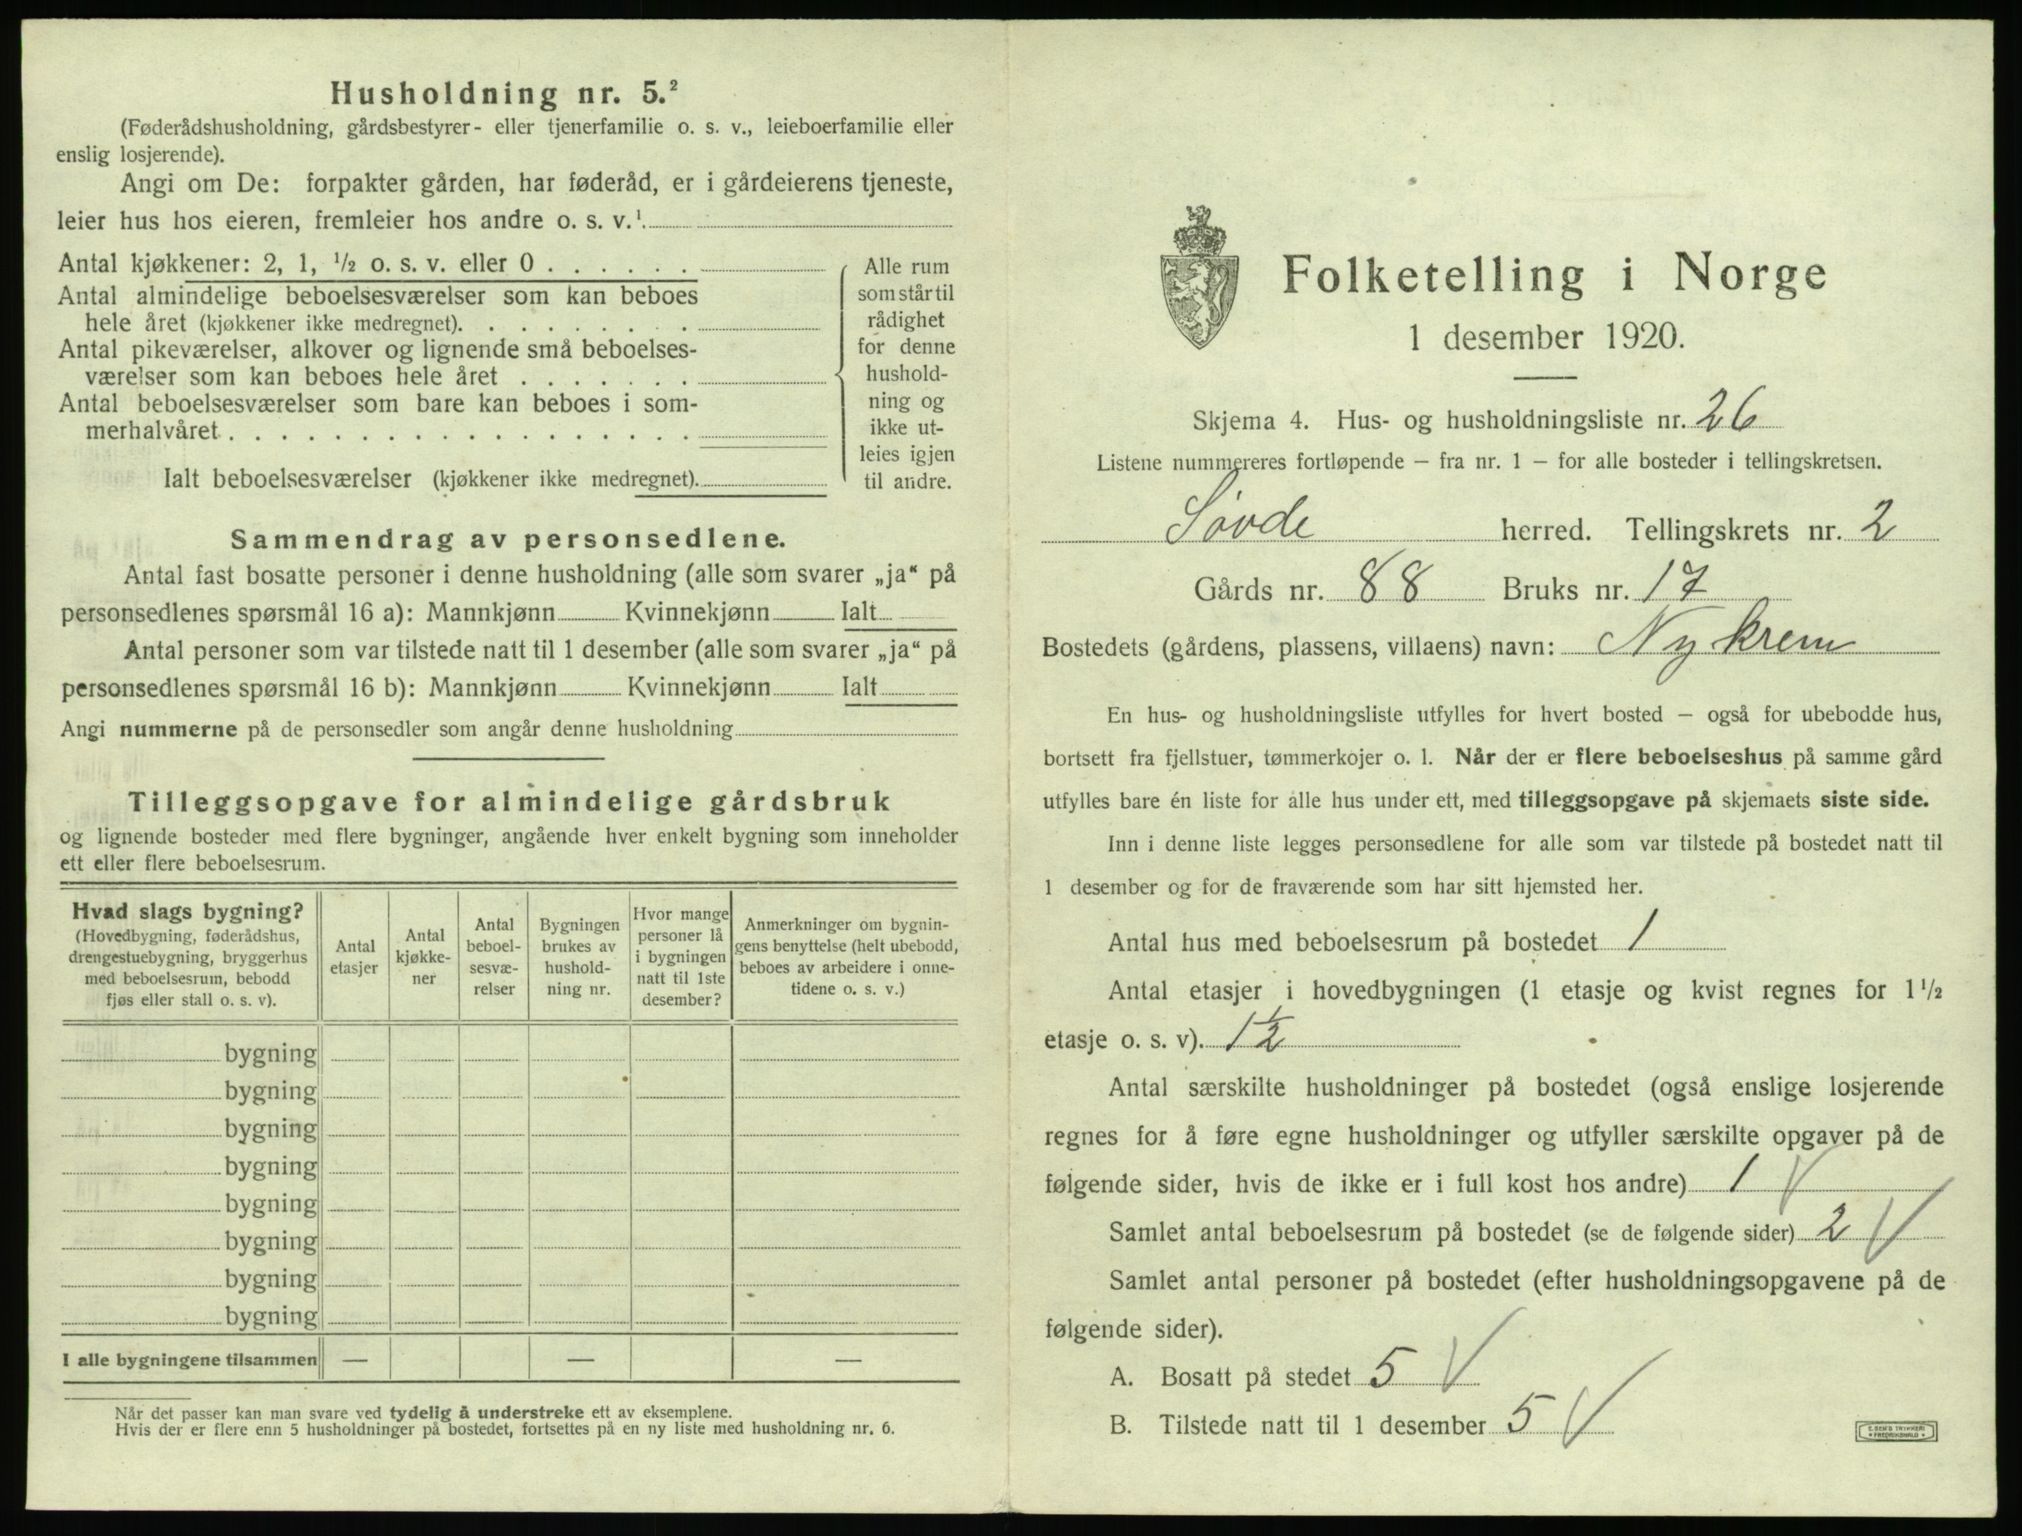 Husholdning nr. 5.²
(Føderådshusholdning, gårdsbestyrer- eller tjenerfamilie o. s. v., leieboerfamilie eller
enslig losjerende).
Angi om De: forpakter gården, har føderåd, er i gårdeierens tjeneste,
leier hus hos eieren, fremleier hos andre o. s. v.¹
Antal kjøkkener: 2, 1, ½ o. s. v. eller 0 . . . . . .
Antal almindelige beboelsesværelser som kan beboes
hele året (kjøkkener ikke medregnet). . . . . . . . .
Antal pikeværelser, alkover og lignende små beboelses-
værelser som kan beboes hele året . . . . . . .
Antal beboelsesværelser som bare kan beboes i som-
merhalvåret . . . . . . . . . . . . . . . . . .
Ialt beboelsesværelser (kjøkkener ikke medregnet).
Alle rum
som står til
rådighet
for denne
hushold-
ning og
ikke ut-
leies igjen
til andre.
Sammendrag av personsedlene.
Antal fast bosatte personer i denne husholdning (alle som svarer „ja“ på
personsedlenes spørsmål 16 a): Mannkjønn Kvinnekjønn Ialt
Antal personer som var tilstede natt til 1 desember (alle som svarer „ja“ på
personsedlenes spørsmål 16 b): Mannkjønn Kvinnekjønn Ialt
Angi nummerne på de personsedler som angår denne husholdning
Tilleggsopgave for almindelige gårdsbruk
og lignende bosteder med flere bygninger, angående hver enkelt bygning som inneholder
ett eller flere beboelsesrum.
Hvad slags bygning?
(Hovedbygning, føderådshus,
drengestuebygning, bryggerhus
med beboelsesrum, bebodd
fjøs eller stall o. s. v).
Antal
etasjer
Antal
kjøkke-
ner
Antal
beboel-
sesvæ-
relser
Bygningen
brukes av
hushold-
ning nr.
Hvor mange
personer lå
i bygningen
natt til 1ste
desember?
Anmerkninger om bygnin-
gens benyttelse (helt ubebodd,
beboes av arbeidere i onne-
tidene o. s. v.)
bygning
bygning
bygning
bygning
bygning
bygning
bygning
bygning
I alle bygningene tilsammen — — —
Når det passer kan man svare ved tydelig å understreke ett av eksemplene.
Hvis der er flere enn 5 husholdninger på bostedet, fortsettes på en ny liste med husholdning nr. 6.
Folketelling i Norge
1 desember 1920.
Skjema 4. Hus- og husholdningsliste nr. 26
Listene nummereres fortløpende — fra nr. 1 — for alle bosteder i tellingskretsen.
Søvde herred. Tellingskrets nr. 2
Gårds nr. 88 Bruks nr. 17
Bostedets (gårdens, plassens, villaens) navn: Nykrem
En hus- og husholdningsliste utfylles for hvert bosted — også for ubebodde hus,
bortsett fra fjellstuer, tømmerkojer o. l. Når der er flere beboelseshus på samme gård
utfylles bare én liste for alle hus under ett, med tilleggsopgave på skjemaets siste side.
Inn i denne liste legges personsedlene for alle som var tilstede på bostedet natt til
1 desember og for de fraværende som har sitt hjemsted her.
Antal hus med beboelsesrum på bostedet 1
Antal etasjer i hovedbygningen (1 etasje og kvist regnes for 1½
etasje o. s. v). 1½
Antal særskilte husholdninger på bostedet (også enslige losjerende
regnes for å føre egne husholdninger og utfyller særskilte opgaver på de
følgende sider, hvis de ikke er i full kost hos andre) 1 V
Samlet antal beboelsesrum på bostedet (se de følgende sider) 2 V
Samlet antal personer på bostedet (efter husholdningsopgavene på de
følgende sider).
A. Bosatt på stedet 5 V
B. Tilstede natt til 1 desember 5 V